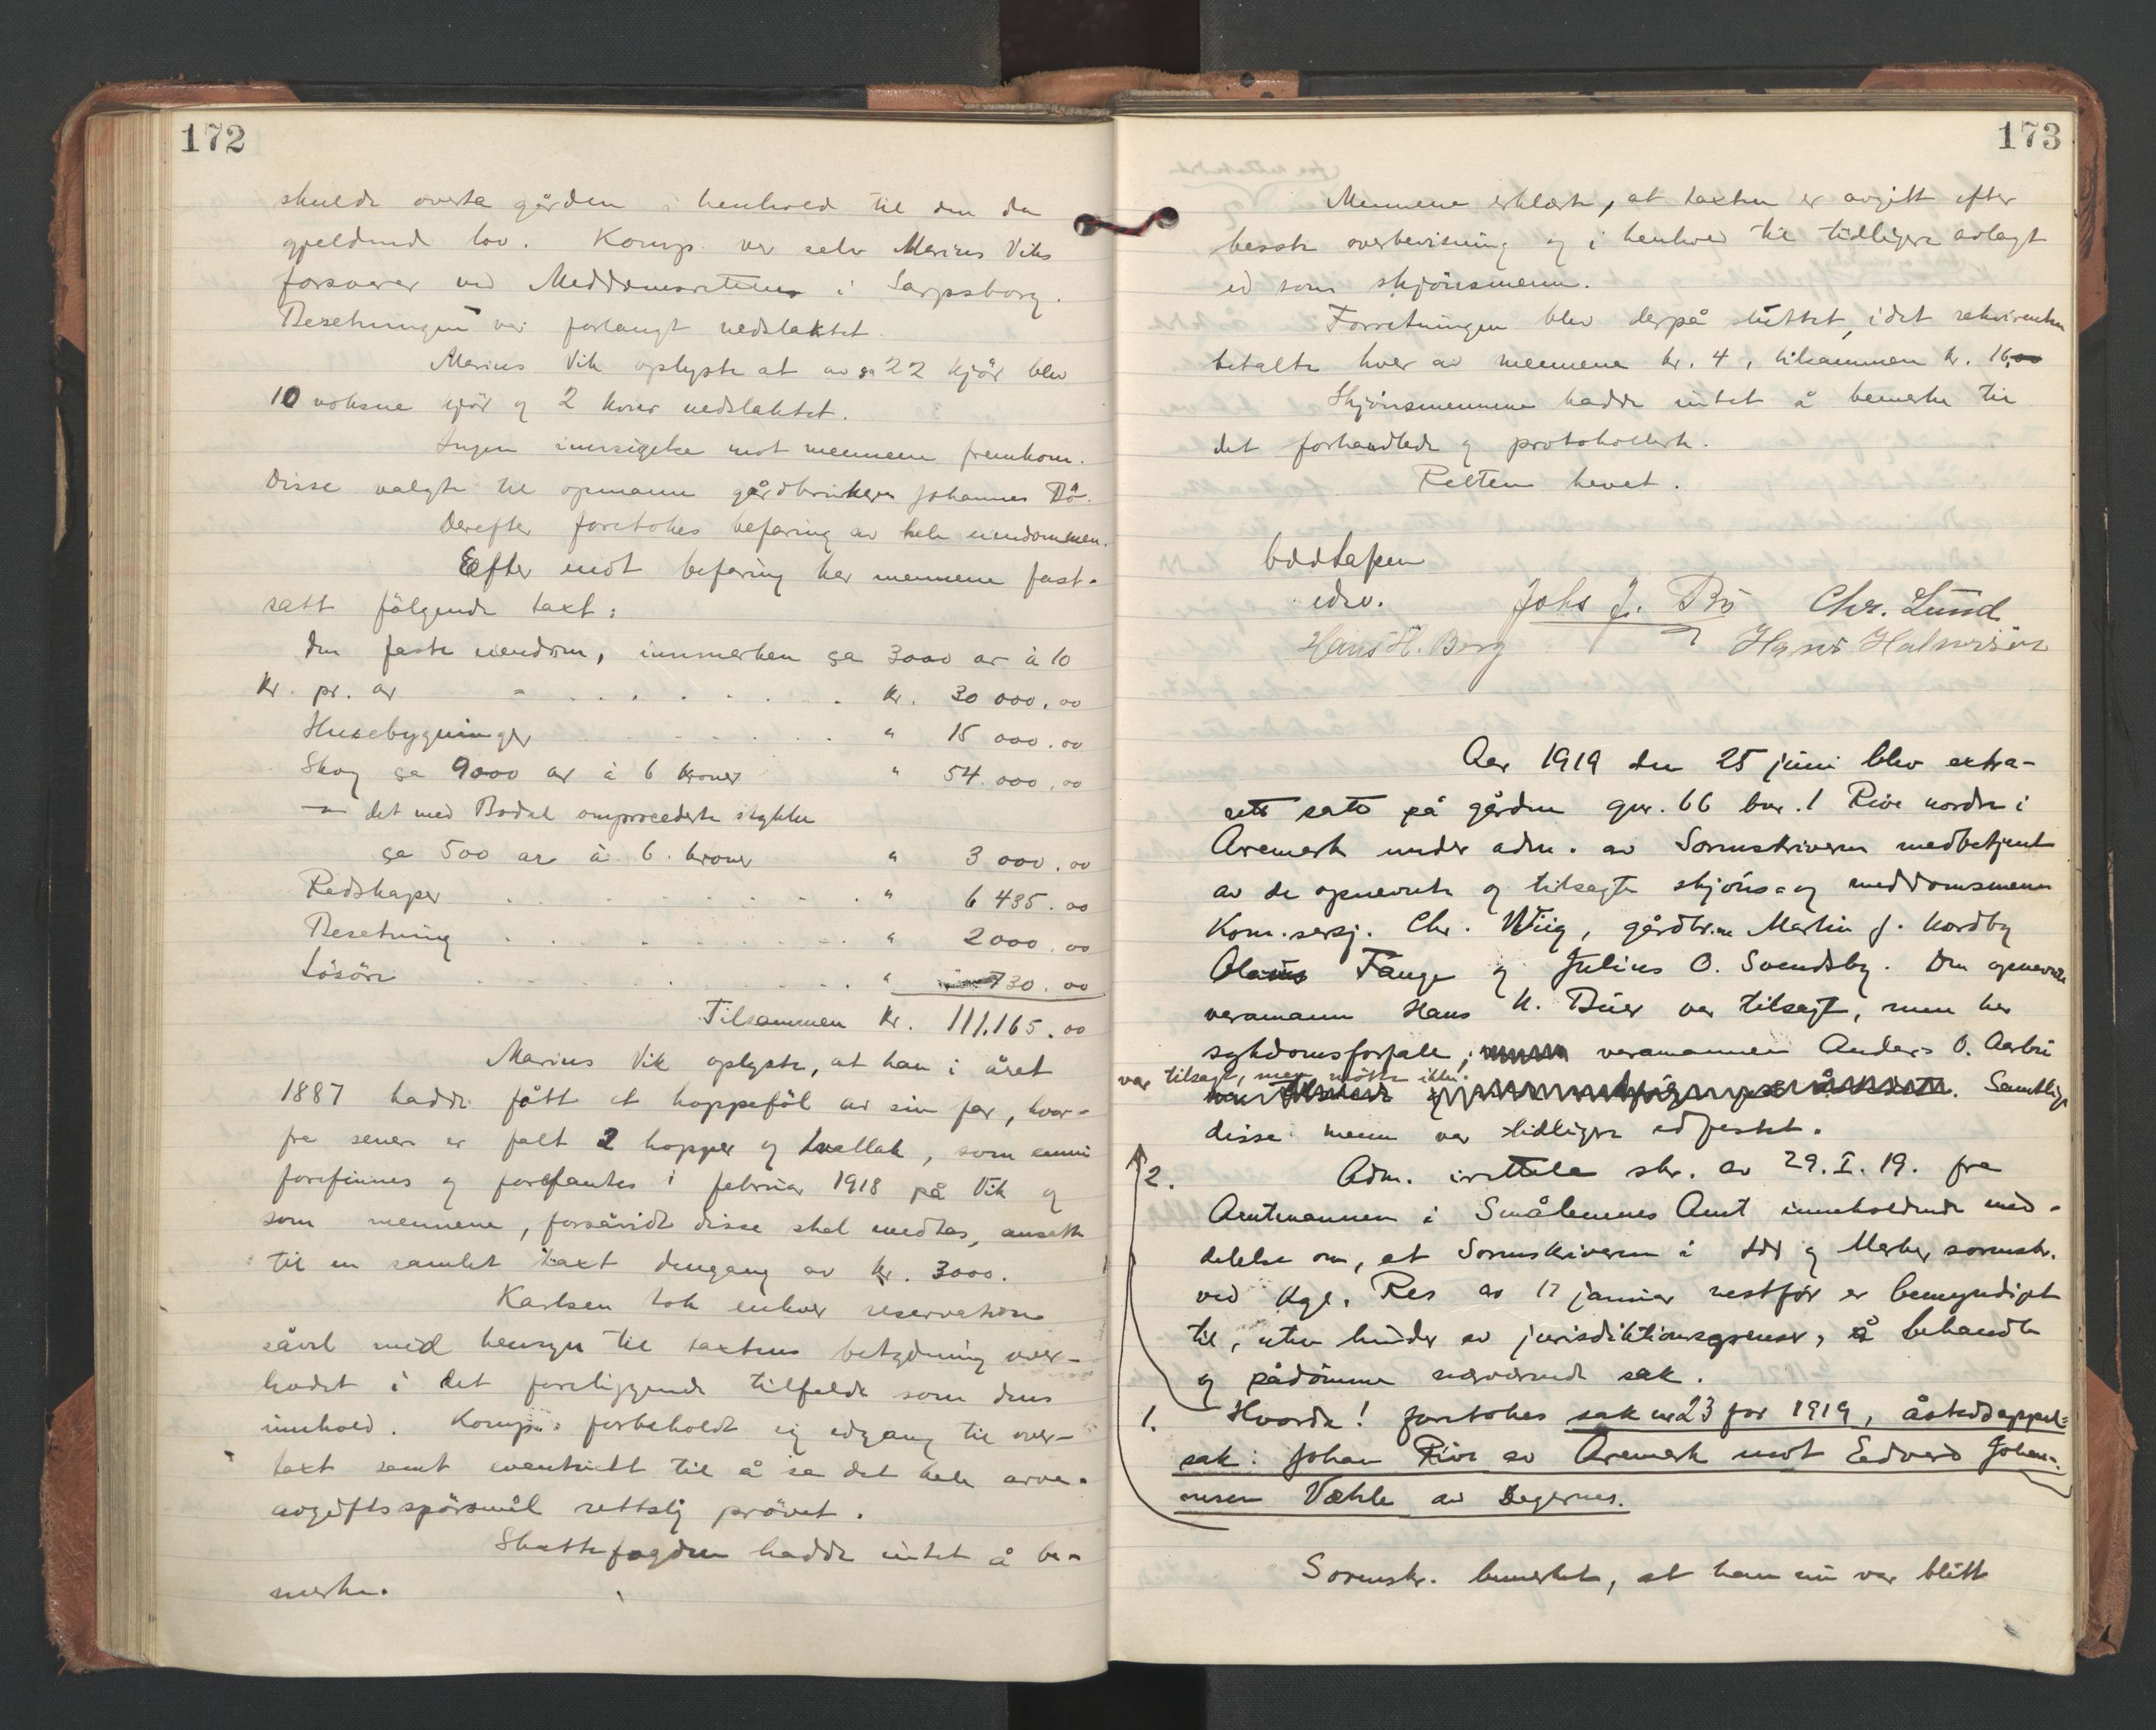 172
skulde overta gården i henhold til den da
gjeldende lov. Komp. var selv Marius Viks
forsvarer ved Meddomsretten i Sarpsborg.
Besetningen var forlangt nedslaktet.
Marius Vik oplyste at av ca 22 kjör blev
10 voksne kjör og 2 kvier nedslaktet.
Ingen innsigelse mot mennene fremkom.
Disse valgte til opmann gårdbruker Johannes Bö.
Derefter foretokes befaring av hele eiendommen.
Efter endt befaring har mennene fast-
satt fölgende taxt:
Den faste eiendom, innmarken ca 3000 ar à 10
kr. pr. ar . . . . . . . kr. 30 000.00
Husebygninger . . . . . " 15 000.00
Skog ca 9000 ar à 6 kroner " 54.000.00
—"— det med Bodal omprocederte stykke
ca 500 ar à 6 kroner " 3 000.00
Redskaper . . . . . . . " 6 435.00
Besetning . . . . . . . " 2000.00
Lösöre . . . . . . . . " 730.00
Tilsammen kr. 111.165.00
Marius Vik oplyste, at han i året
1887 hadde fått et hoppeföl av sin far, hvor-
fra senere er falt 2 hopper og 1 vallak, som ennu
forefinnes og forefantes i februar 1918 på Vik og
som mennene, forsåvidt disse skal medtas, ansatte
til en samlet taxt dengang av kr. 3000.
Karlsen tok enhver reservation
såvel med hensyn til taxtens betydning over-
hodet i det foreliggende tilfelde som dens
innhold. Komp. forbeholdt sig adgang til over-
taxt samt eventuelt til å se det hele arve-
avgiftsspörsmål rettslig prövet.
Skattefogden hadde intet å be-
merke.
173
Mennene erklærte, at taxten er avgitt efter
beste overbevisning og i henhold til tidligere avlagt
ed som skjönsmenn.
Forretningen blev derpå sluttet, idet rekvirenten
betalte hver av mennene kr. 4, tilsammen kr. 16,00
Skjönsmennene hadde intet å bemerke til
det forhandlede og protokollerte.
Retten hevet.
edsv.
Johs J. Bö Chr. Lund
Hans H. Berg Hans Halvorsen
Aar 1919 den 25 juni blev extra-
rett satt på gården gnr. 66 bnr. 1 Rive nordre i
Aremark under adm. av Sorenskriveren medbetjent
av de opnevnte og tilsagte skjöns- og meddomsmenn
Kom.sersj. Chr. Wiig, gårdbr.ne Martin J. Nordby
Olaus Tange og Julius O. Svendsby. Den opnevnte
varamann Hans N. Buer var tilsagt, men har
sykdomsforfall, varamannen Anders O. Aarbu
var tilsagt, men mötte ikke. Samtlige
disse menn var tidligere edfestet.
2. Adm. irettela skr. av 29.I.19. fra
Amtmannen i Smålenenes Amt inneholdende med-
delelse om, at Sorenskriveren i Idd og Marker sorenskr.
ved Kgl. Res av 17 januar nestfør er bemyndiget
til, uten hinder av jurisdiktionsgrenser, å behandle
og pådömme nærværende sak.
1. Hvorda! foretokes sak nr 23 for 1919, åstedsappel-
sak: Johan Rive av Aremark mot Edvard Johan-
nesen Væhle av Degernes.
Sorenskr. bemerket, at han nu var blitt